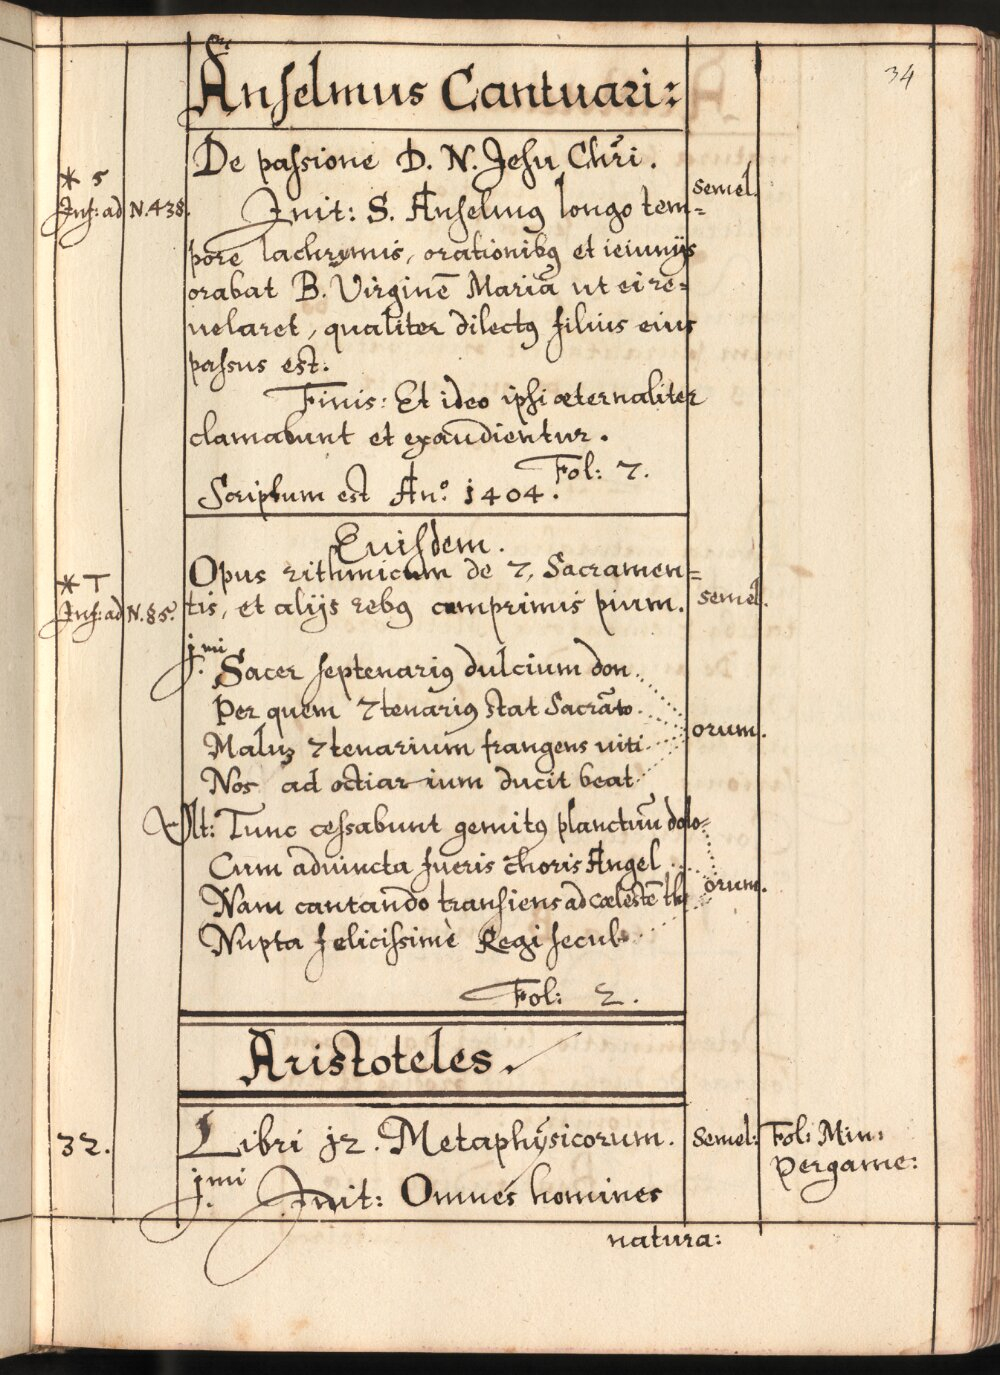 34
Sti
Anselmus Cantuari:
De passione D. N. Jesu Chri̅.
* 5
semel.
Ins: ad N. 438.
Init: S. Anselmꝰ longo tem=
pore lachrymis, orationibꝰ et ieiunijs
orabat B. Virgine̅ Maria̅ ut ei re=
uelaret, qualiter dilectꝰ filius eius
passus est.
Finis: Et ideo ipsi æternaliter
clamabunt et exaudientur.
Fol: 7.
Scriptum est An̊: 1404.
Euisdem.
* T
Opus rithmicum de 7, Sacramen=
Ins: ad N. 85.
tis, et alijs rebꝰ cumprimis pium.
semel.
jmi
Sacer septenariꝰ dulcium don..
Per quem 7tenariꝰ stat Sacra̅to.
orum.
Malus 7tenarium frangens uiti..
Nos ad octiarium ducit beat..
Ult: Tunc cessabunt gemitꝰ planctuu̅ dolo..
Cum adiuncta fueris choris Angel..
orum.
Nam cantando transiens ad cœleste̅ th..
Nupta felicissimè Regi secul..
Fol: 2.
Aristoteles.
32.
Libri jz. Metaphÿsicorum.
Semel:
Fol: Min:
Pergame:
jmi
Init: Omnes homines
natura: